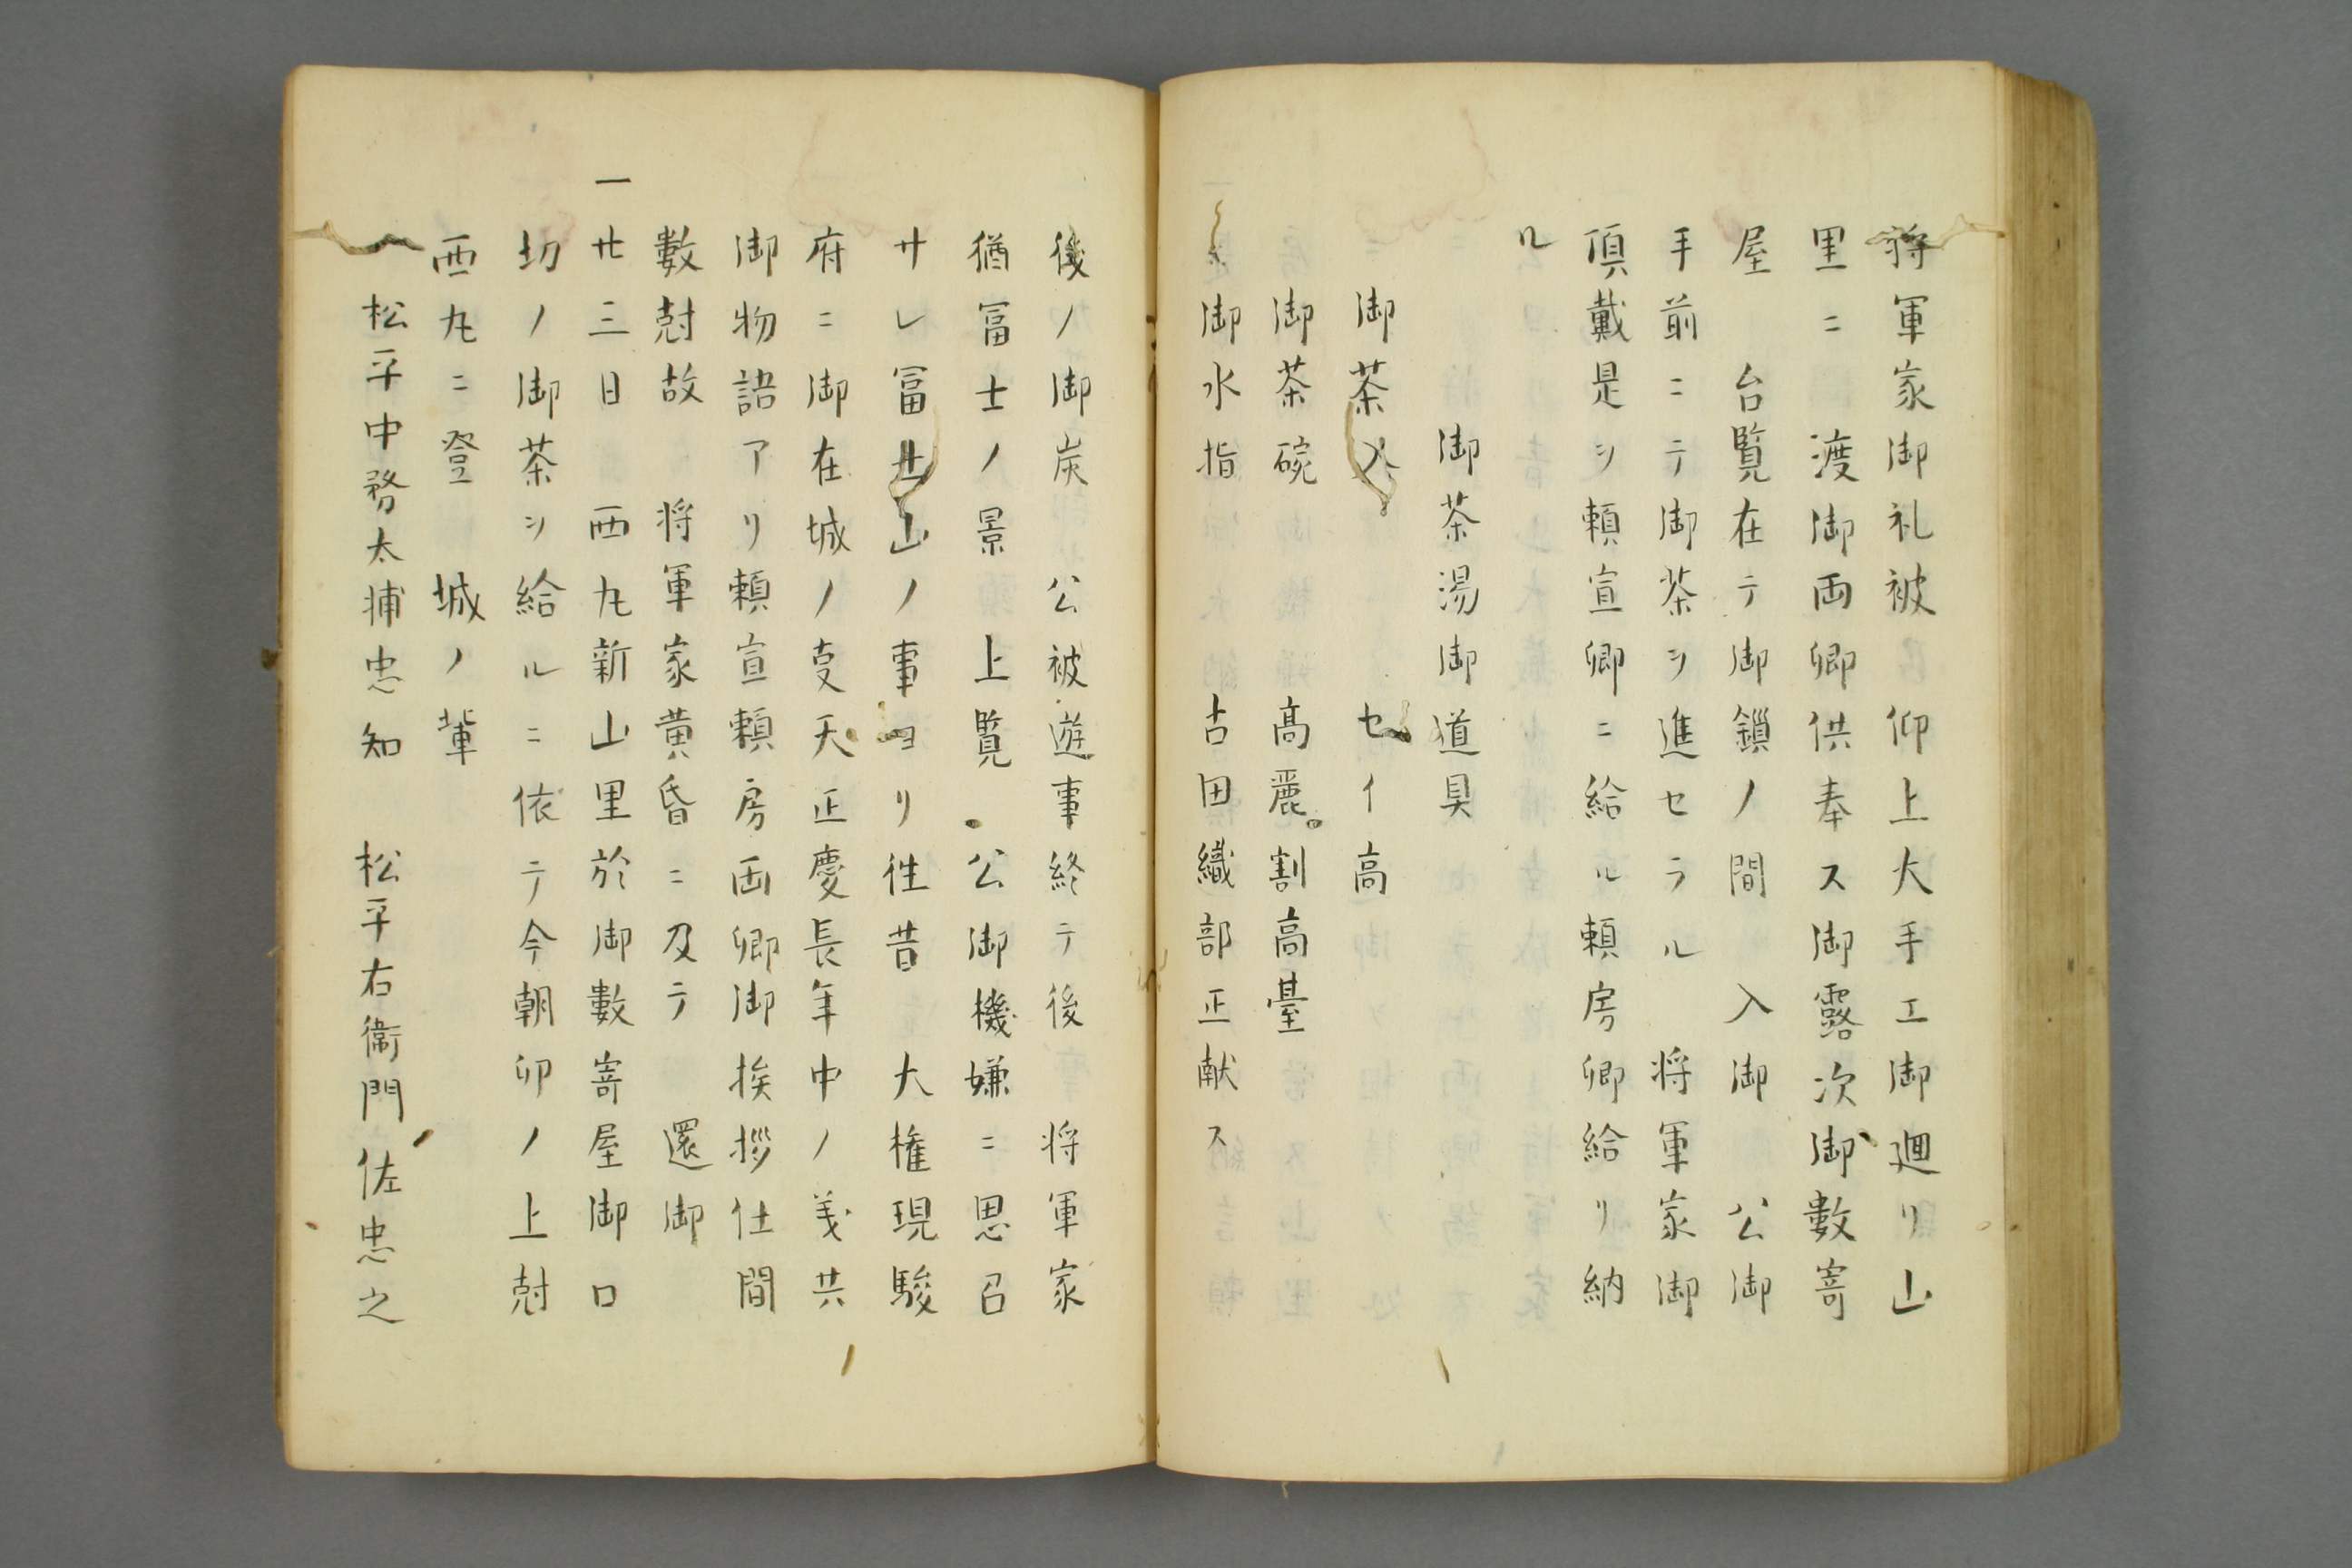 将軍家御礼被　仰上大手エ御廻リ山
里ニ　渡御両卿供奉ス御露次御數寄
屋　台覧在テ御鎖ノ間　入御　公御
手前ニテ御茶ヲ進セラル　将軍家御
頂戴是ヲ頼宣卿ニ給ル頼房卿給リ納
ル
御茶湯御道具
御茶入　セイ高
御茶碗　高麗割高臺
御水指　古田織部正献ス
後ノ御炭　公被遊事終テ後　将軍家
猶冨士ノ景　上覧　公御機嫌ニ思召
サレ冨士山ノ事ヨリ徃昔　大権現駿
府ニ御在城ノ叓天正慶長年中ノ義共
御物語アリ頼宣頼房両卿御挨拶仕間
數尅故　将軍家黄昏ニ及テ　還御
一廿三日　西丸新山里於御數寄屋御口
切ノ御茶ヲ給ルニ依テ今朝卯ノ上尅
西丸ニ登　城ノ輩
一松平中務太捕忠知　松平右衞門佐忠之